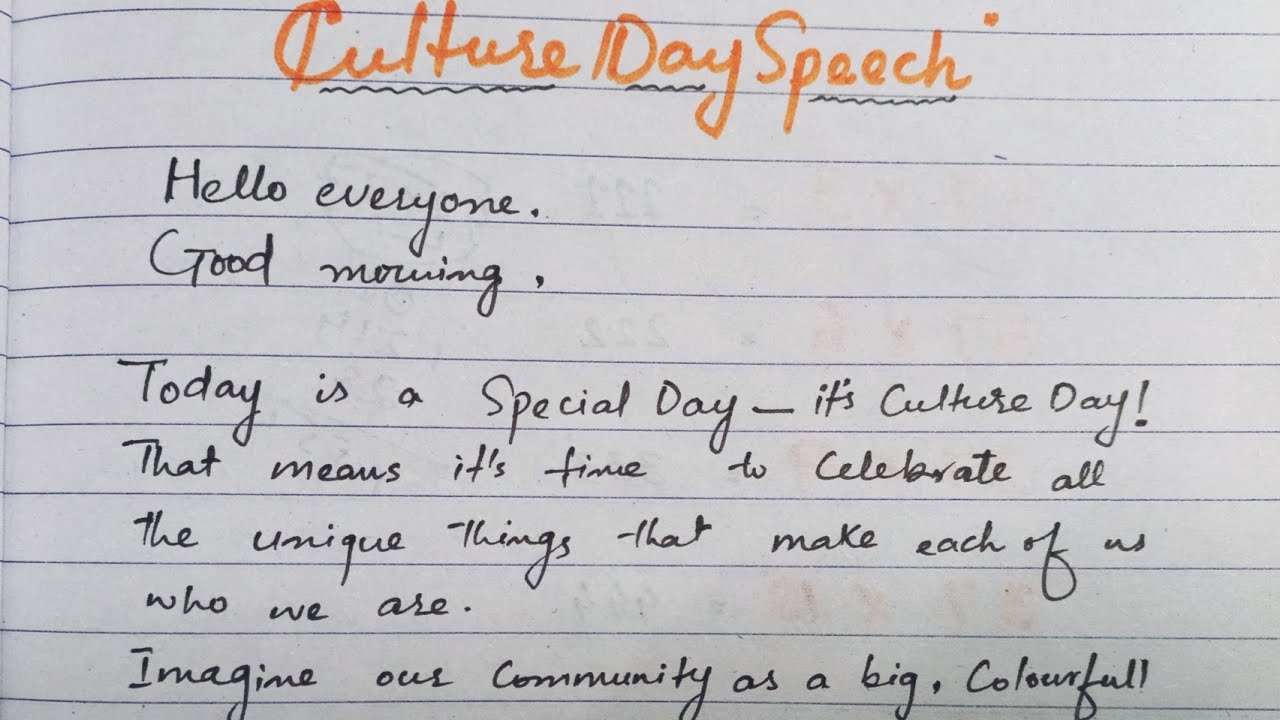 Culture Day Speech"
Hello everyone.
Good morning,
Today is a Special Day – it's Culture Day!
That means it's time to Celebrate all
the unique things that make each of us
who we are.
Imagine our Community as a big, Colourfull